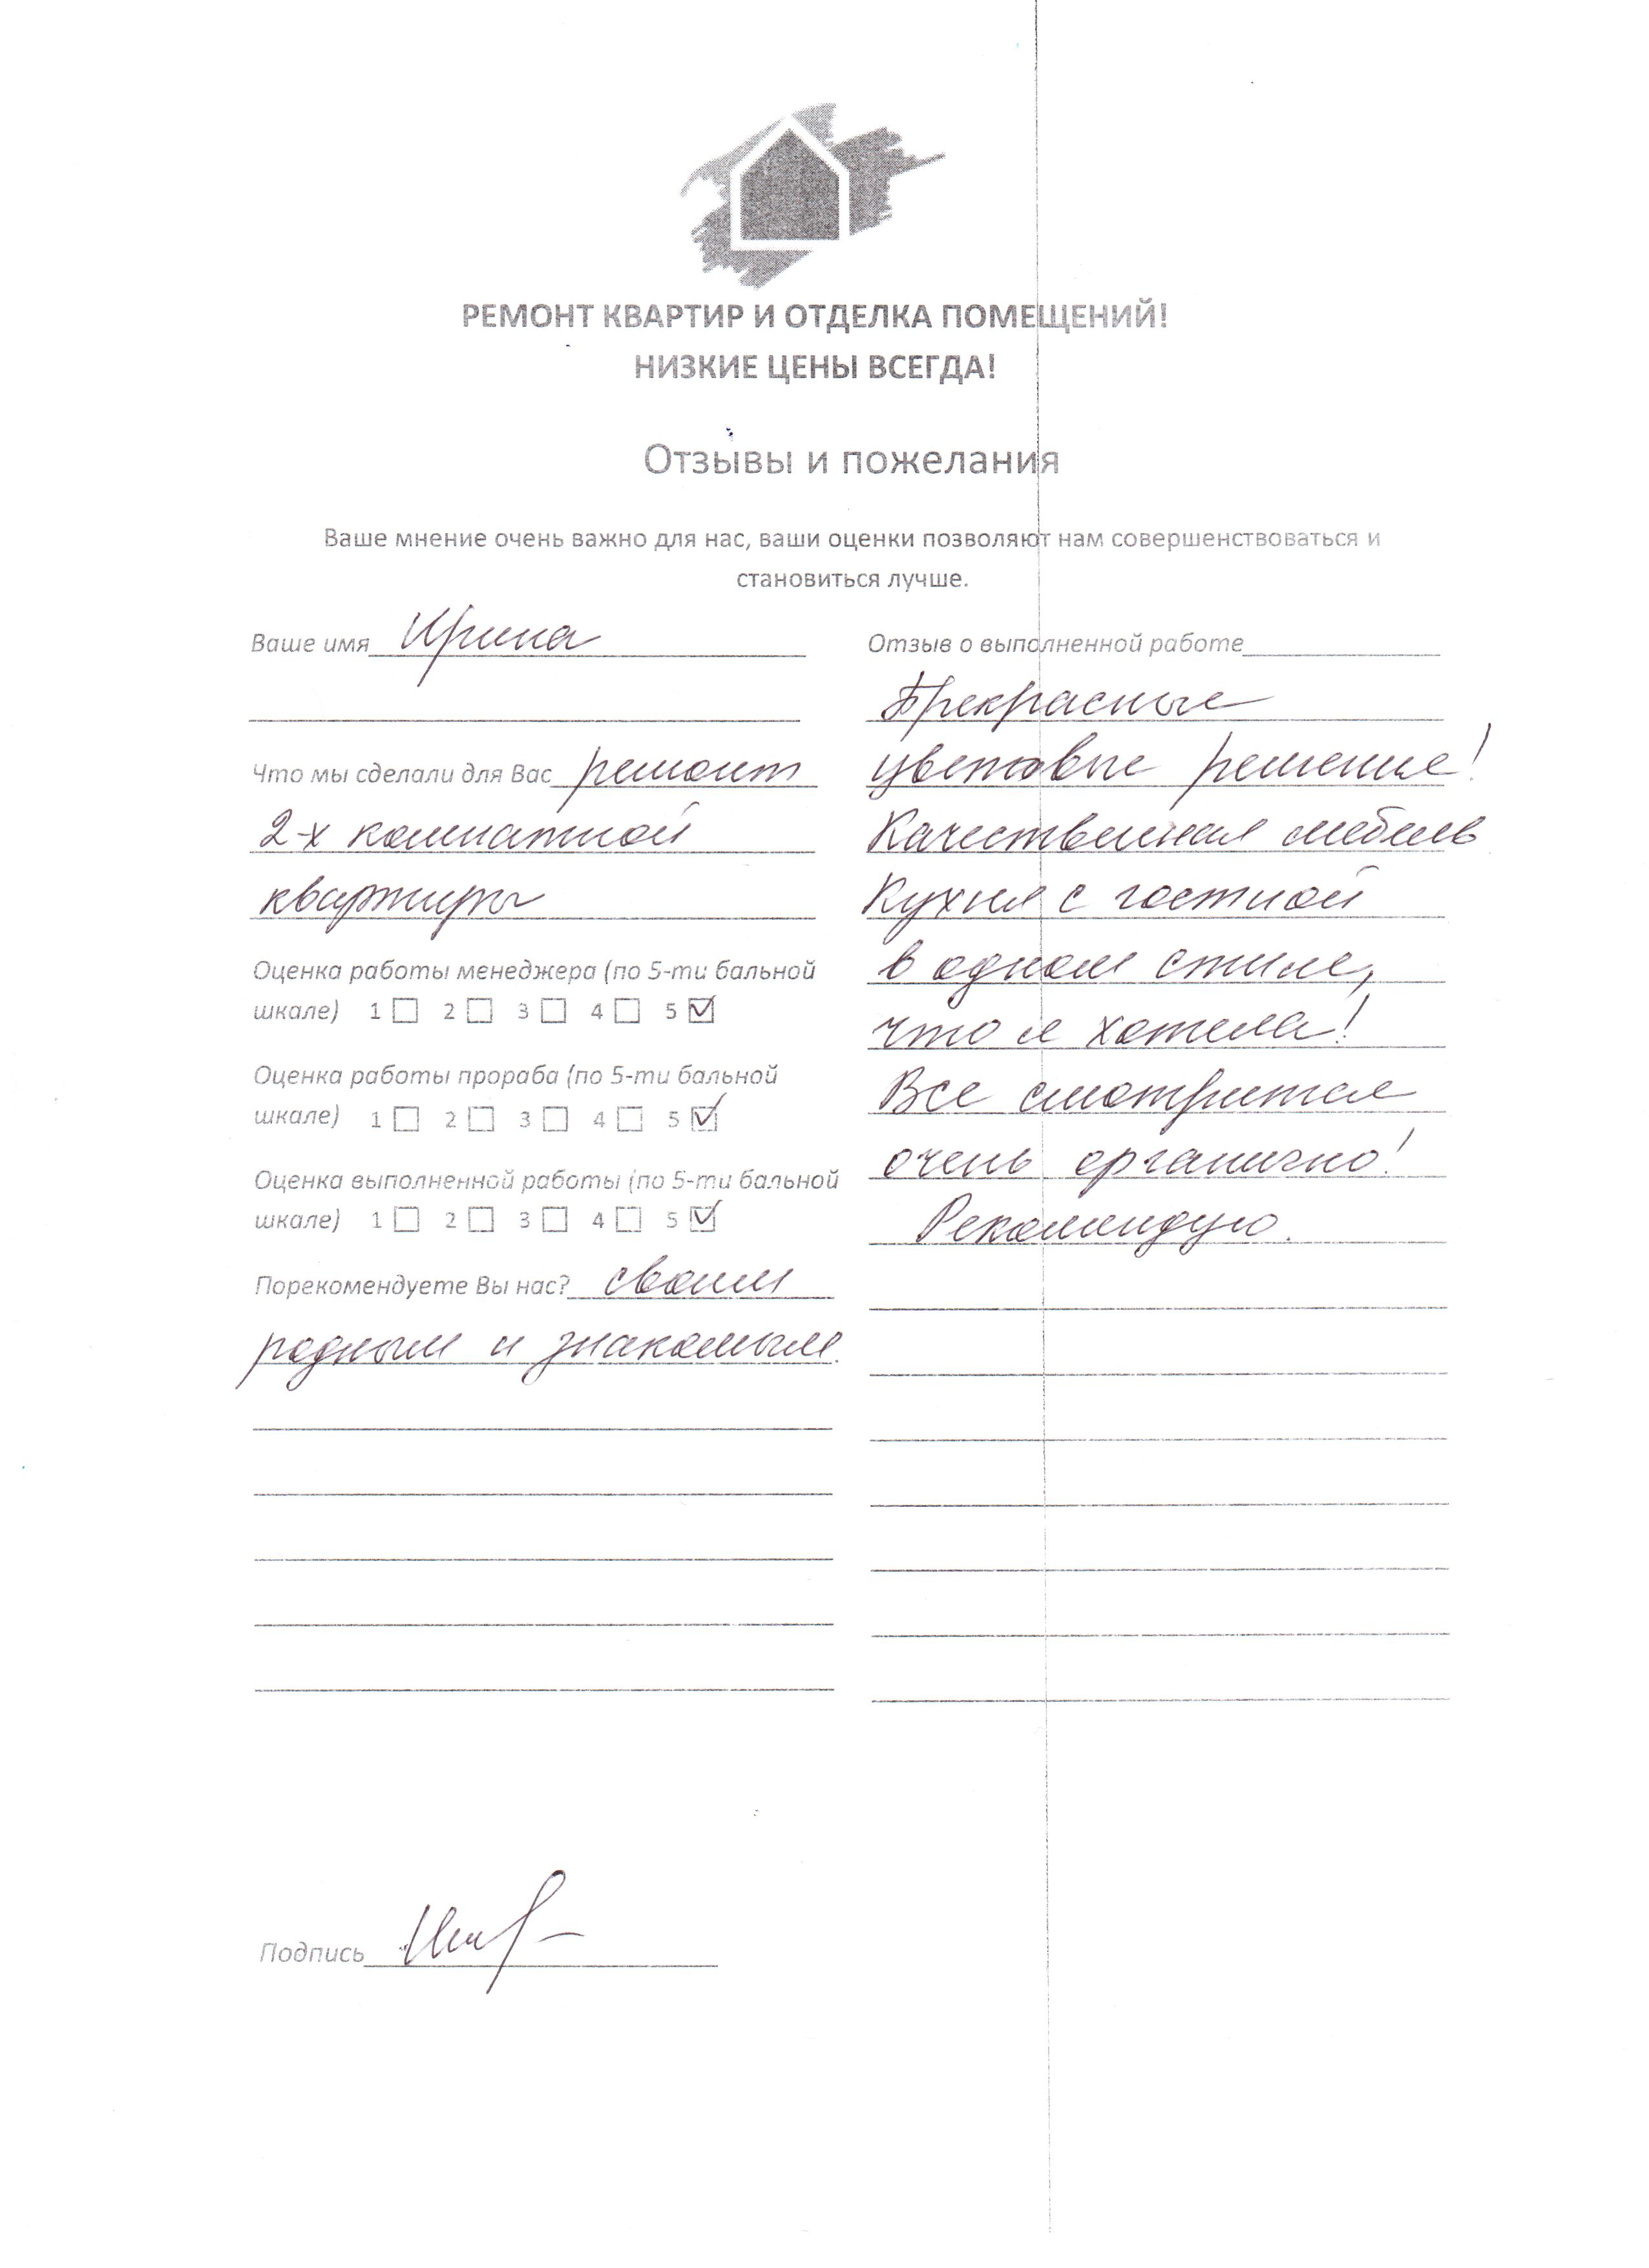 РЕМОНТ КВАРТИР И ОТДЕЛКА ПОМЕЩЕНИЙ!
НИЗКИЕ ЦЕНЫ ВСЕГДА!
Отзывы и пожелания
Ваше мнение очень важно для нас, ваши оценки позволяют нам совершенствоваться и
становиться лучше.
Ваше имя Ирина
Что мы сделали для Вас ремонт
2-х комнатной
квартиры
Оценка работы менеджера (по 5-ти бальной
шкале) 1 ☐ 2 ☐ 3 ☐ 4 ☐ 5 ☑
Оценка работы прораба (по 5-ти бальной
шкале) 1 ☐ 2 ☐ 3 ☐ 4 ☐ 5 ☑
Оценка выполненной работы (по 5-ти бальной
шкале) 1 ☐ 2 ☐ 3 ☐ 4 ☐ 5 ☑
Порекомендуете Вы нас? своим
родным и знакомым.
Отзыв о выполненной работе
Прекрасные
цветовые решение!
Качественная мебель
Кухня с гостной
в одном стиле,
что я хотела!
Все смотрится
очень органично!
Рекомендую.
Подпись